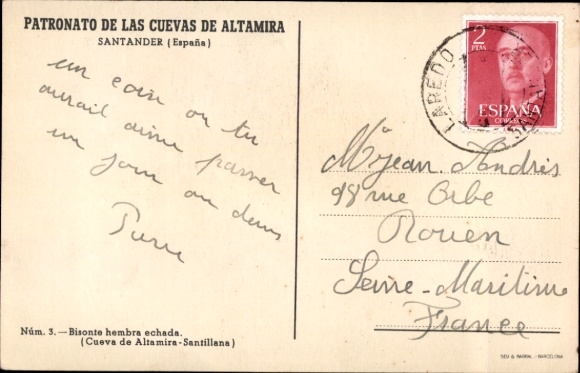 PATRONATO DE LAS CUEVAS DE ALTAMIRA
SANTANDER (España)
un coin où tu
aurais aimé passer
un jour ou deux
Pierre
Núm. 3. — Bisonte hembra echada.
(Cueva de Altamira-Santillana)
2
PTAS
ESPAÑA
CORREOS
LAREDO
Mr Jean Andrés
98 rue Orbe
Rouen
Seine-Maritime
France
SEIX & BARRAL - BARCELONA